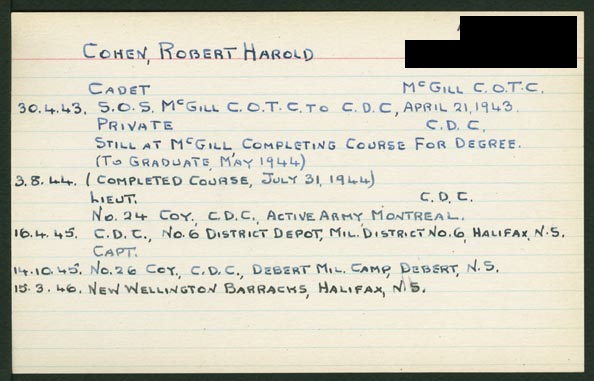 COHEN, ROBERT HAROLD
CADET McGILL C.O.T.C.
30.4.43. S.O.S. McGILL C.O.T.C. TO C.D.C., APRIL 21, 1943.
PRIVATE C.D.C.
STILL AT McGILL COMPLETING COURSE FOR DEGREE.
(TO GRADUATE, MAY 1944)
3.8.44. (COMPLETED COURSE, JULY 31, 1944)
LIEUT. C.D.C.
No. 24 COY., C.D.C., ACTIVE ARMY MONTREAL.
16.4.45. C.D.C., No. 6 DISTRICT DEPOT, MIL. DISTRICT No. 6, HALIFAX, N.S.
CAPT.
14.10.45. No. 26 COY., C.D.C., DEBERT MIL. CAMP, DEBERT, N.S.
15.3.46. NEW WELLINGTON BARRACKS, HALIFAX, N.S.